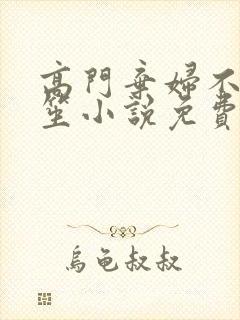 高門棄婦不
笙小說免費
烏龜叔叔